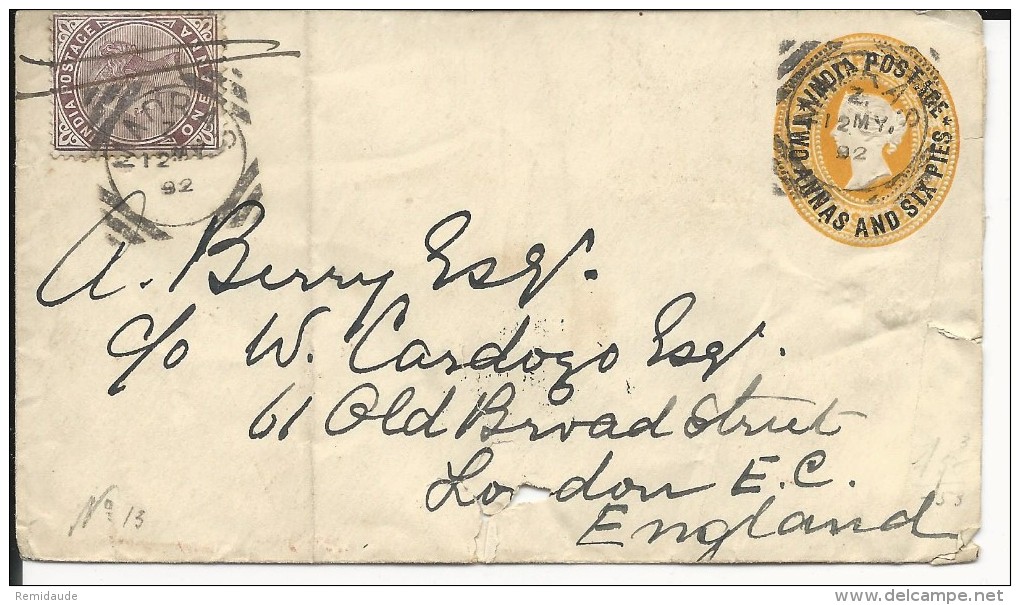 INDIA POSTAGE
ONE ANNA
MADRAS
12 MY
92
INDIA POSTAGE
TWO ANNAS AND SIX PIES
Z.
12 MY.
92
A. Berry Esqr.
c/o W. Cardozo Esqr.
61 Old Broad Street
London E.C.
England
No 13
Remidaude
www.delcampe.net